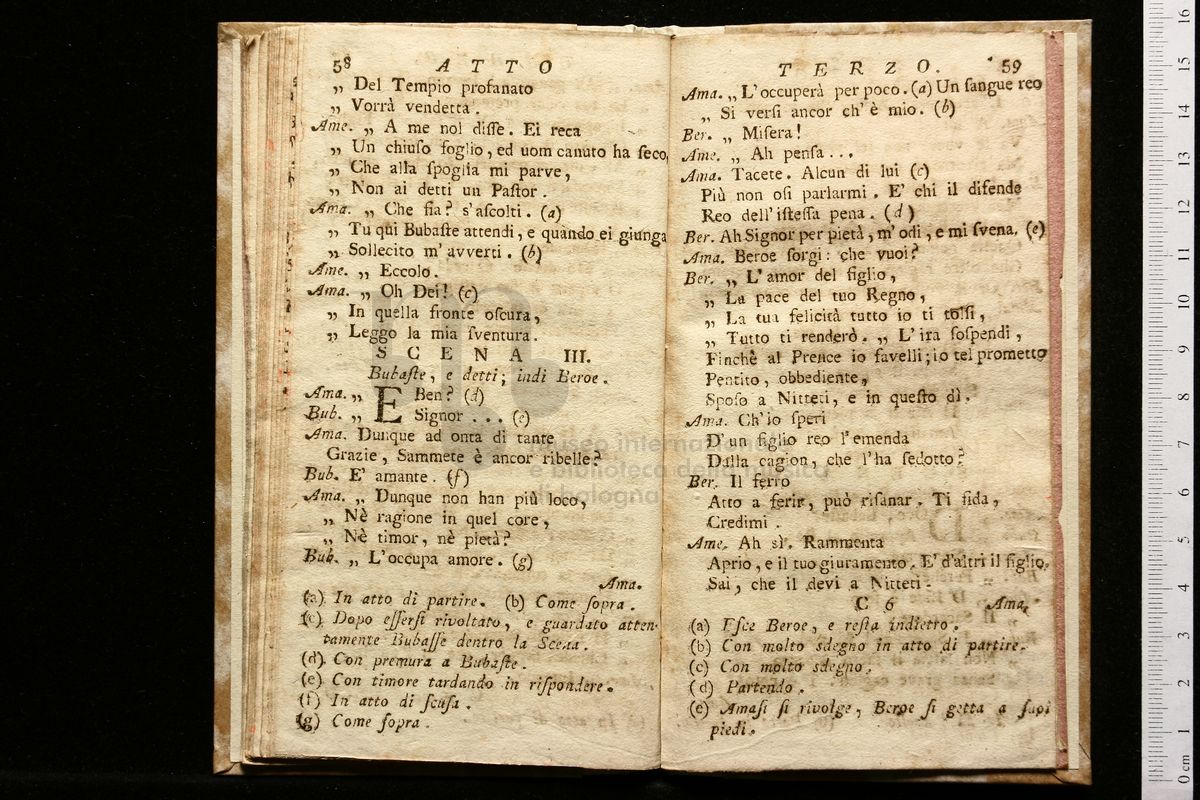 58 ATTO
„ Del Tempio profanato
„ Vorrà vendetta.
Ame. „ A me nol diſſe. Ei reca
„ Un chiuſo foglio, ed uom canuto ha ſeco,
„ Che alla ſpoglia mi parve,
„ Non ai detti un Paſtor.
Ama. „ Che fia? s'aſcolti. (a)
„ Tu qui Bubaſte attendi, e quando ei giunga
„ Sollecito m'avverti. (b)
Ame. „ Eccolo.
Ama. „ Oh Dei! (c)
„ In quella fronte oſcura,
„ Leggo la mia ſventura.
SCENA III.
Bubaſte, e detti; indi Beroe.
Ama. „ E Ben? (d)
Bub. „ Signor ... (e)
Ama. Dunque ad onta di tante
Grazie, Sammete è ancor ribelle?
Bub. E' amante. (f)
Ama. „ Dunque non han più loco,
„ Nè ragione in quel core,
„ Nè timor, nè pietà?
Bub. „ L'occupa amore. (g)
Ama.
(a) In atto di partire. (b) Come ſopra.
(c) Dopo eſſerſi rivoltato, e guardato atten-
tamente Bubaſſe dentro la Scena.
(d) Con premura a Bubaſte.
(e) Con timore tardando in riſpondere.
(f) In atto di ſcuſa.
(g) Come ſopra.
TERZO. 59
Ama. „ L'occuperà per poco. (a) Un ſangue reo
„ Si verſi ancor ch'è mio. (b)
Ber. „ Miſera!
Ame. „ Ah penſa ...
Ama. Tacete. Alcun di lui (c)
Più non oſi parlarmi. E' chi il difende
Reo dell'iſteſſa pena. (d)
Ber. Ah Signor per pietà, m'odi, e mi ſvena. (e)
Ama. Beroe ſorgi: che vuoi?
Ber. „ L'amor del figlio,
„ La pace del tuo Regno,
„ La tua felicità tutto io ti tolſi,
„ Tutto ti renderò. „ L'ira ſoſpendi,
Finchè al Prence io favelli; io tel prometto
Pentito, obbediente,
Spoſo a Nitteti, e in queſto dì.
Ama. Ch'io ſperi
D'un figlio reo l'emenda
Dalla cagion, che l'ha ſedotto?
Ber. Il ferro
Atto a ferir, può riſanar. Ti fida,
Credimi.
Ame. Ah sì. Rammenta
Aprio, e il tuo giuramento. E' d'altri il figlio.
Sai, che il devi a Nitteti.
C 6 Ama.
(a) Eſce Beroe, e reſta indietro.
(b) Con molto sdegno in atto di partire.
(c) Con molto sdegno.
(d) Partendo.
(e) Amaſi ſi rivolge, Beroe ſi getta a ſuoi
piedi.
museo internazionale
e biblioteca della musica
di bologna
0 cm 1 2 3 4 5 6 7 8 9 10 11 12 13 14 15 16